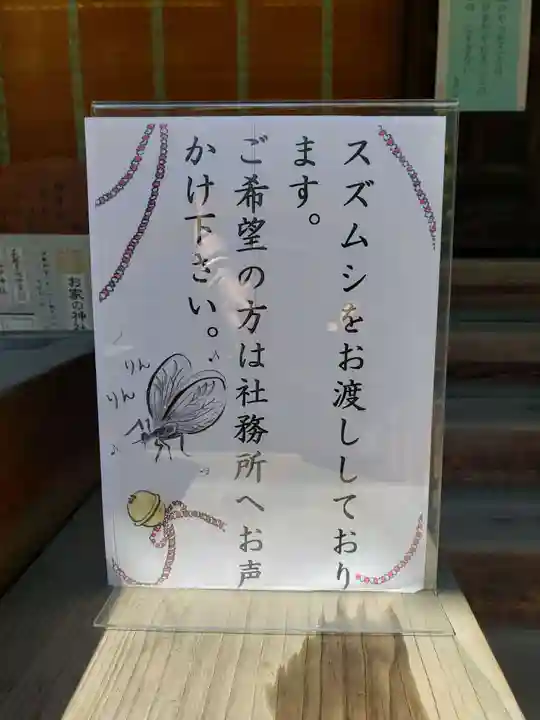 スズムシをお渡ししており
ます。
ご希望の方は社務所へお声
かけ下さい。
りん
りん
お家の神